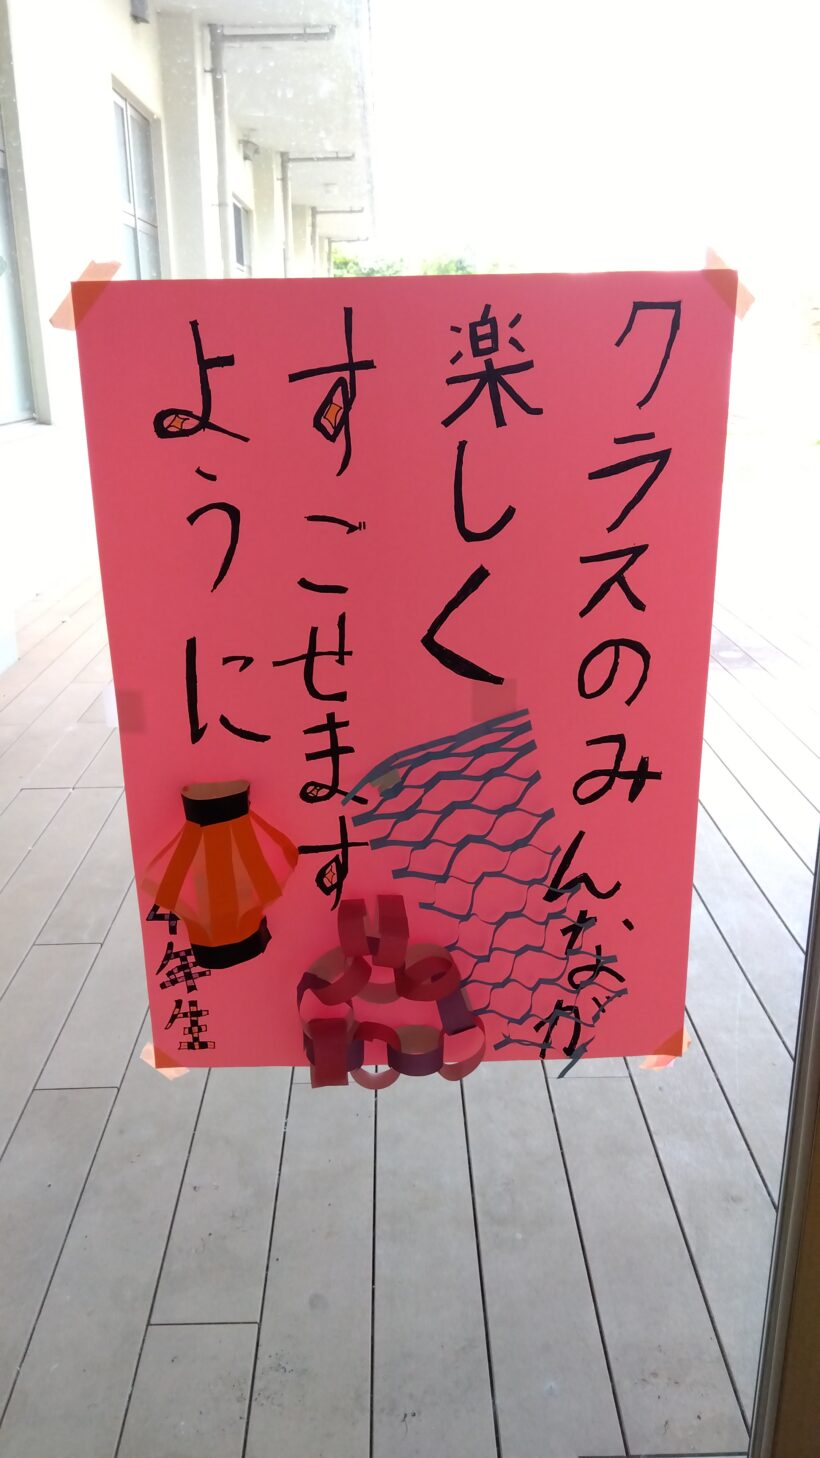 クラスのみんなが
楽しく
すごせます
ように
4年生